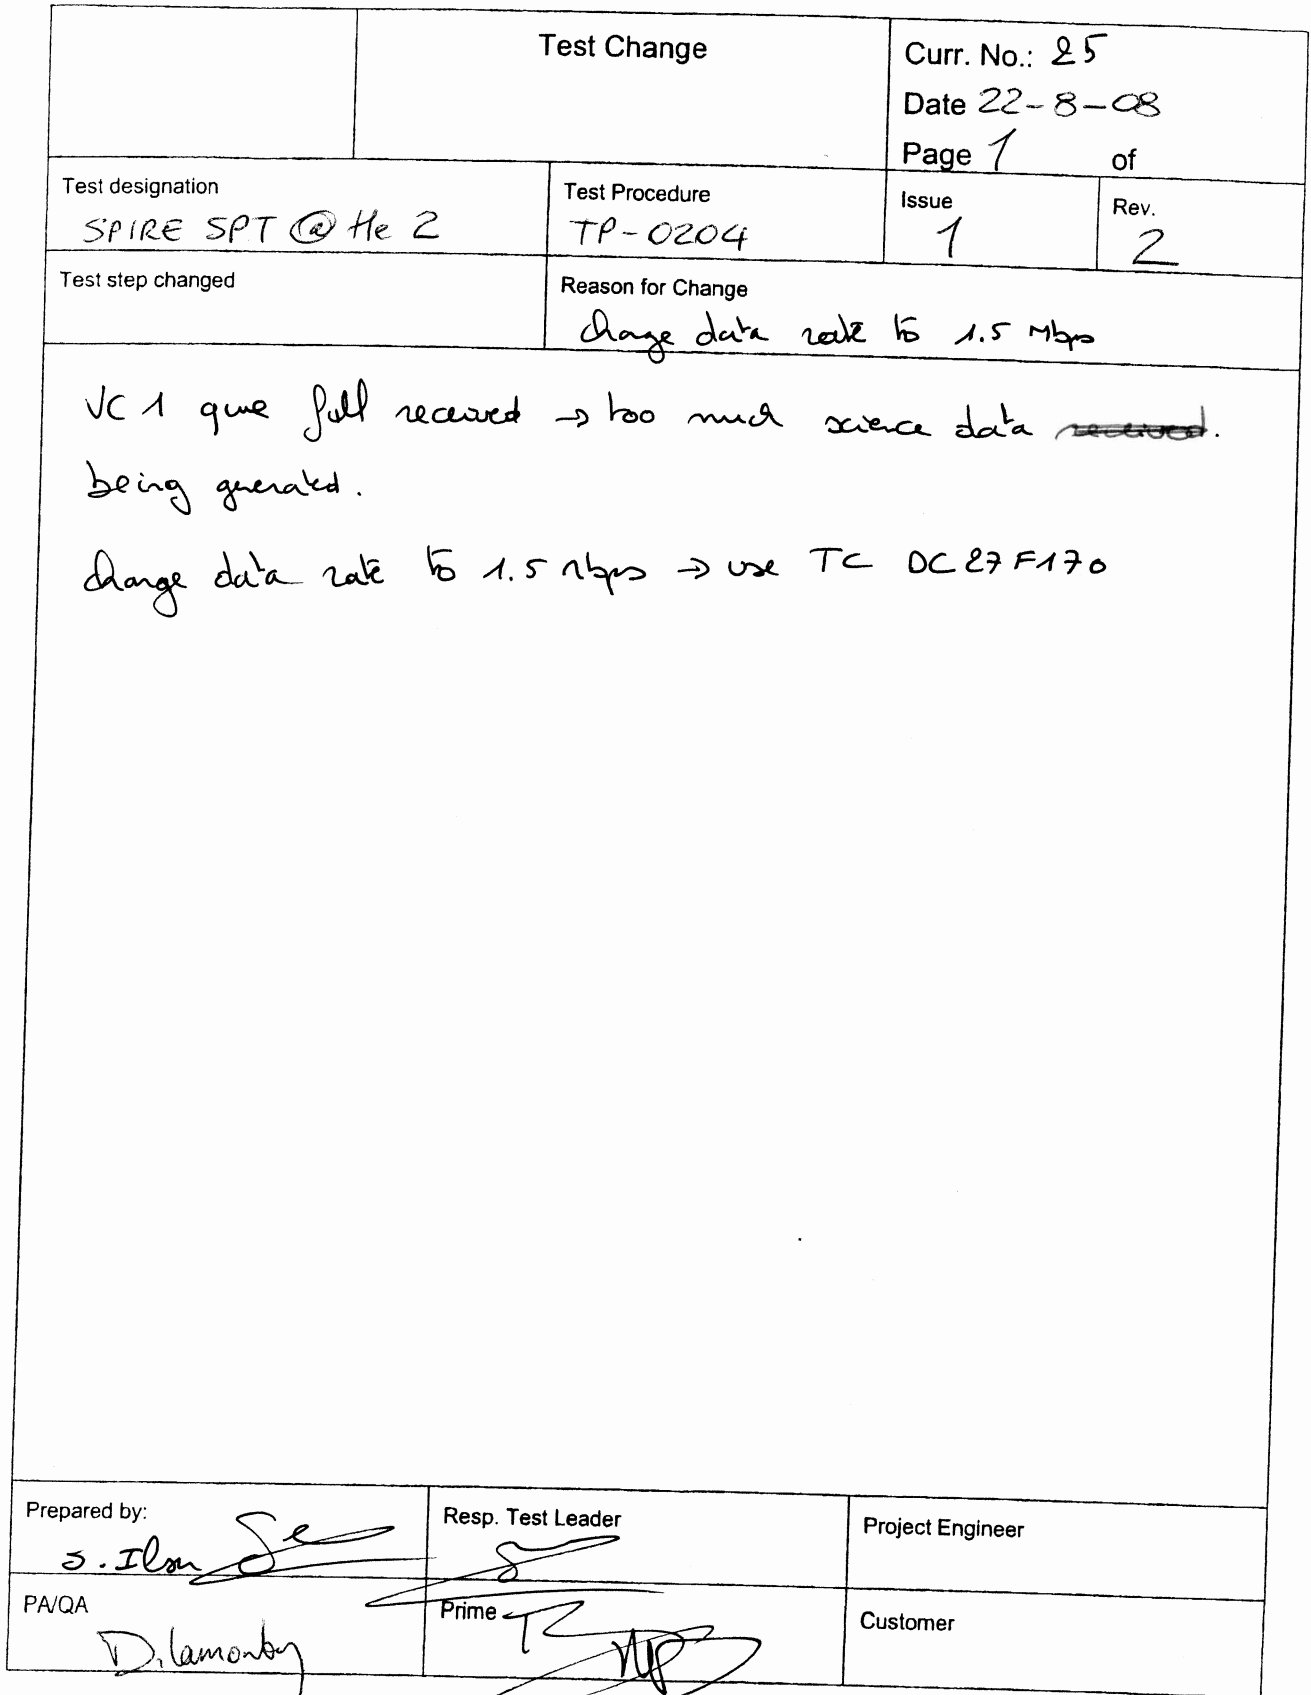 Test Change
Curr. No.: 25
Date 22-8-08
Page 1 of
Test designation
SPIRE SPT @ He 2
Test Procedure
TP-0204
Issue
1
Rev.
2
Test step changed
Reason for Change
Change data rate to 1.5 Mbps
VC 1 queue full received → too much science data received.
being generated.
Change data rate to 1.5 Mbps → use TC DC27F170
Prepared by:
S. Ilsen
Resp. Test Leader
Project Engineer
PA/QA
D. Lamonby
Prime
Customer